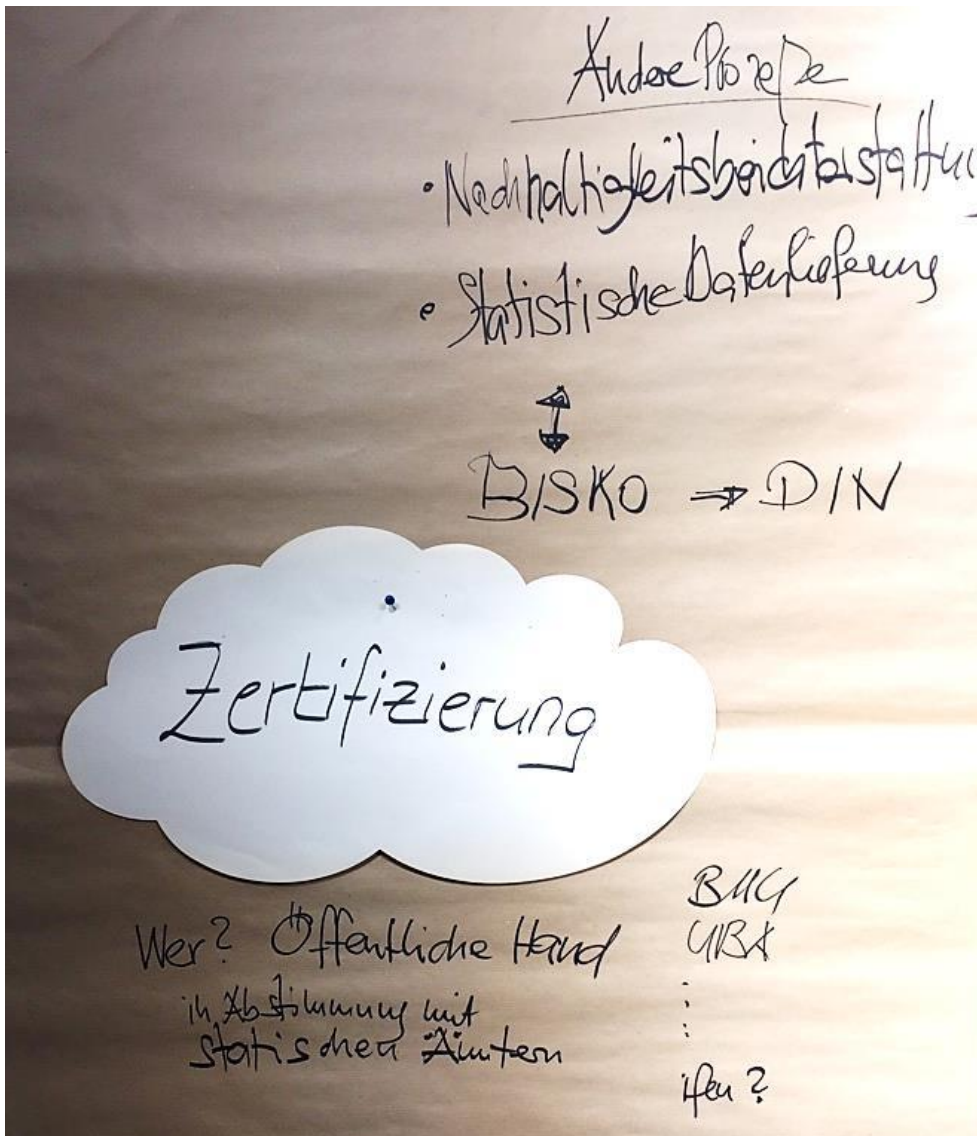 Andere Prozeße
• Nachhaltigkeitsberichterstattun
• Statistische Datenlieferung
BISKO ⇒ DIN
Zertifizierung
BMU
Wer? Öffentliche Hand
UBA
in Abstimmung mit
statischen Ämtern
:
:
ifeu?